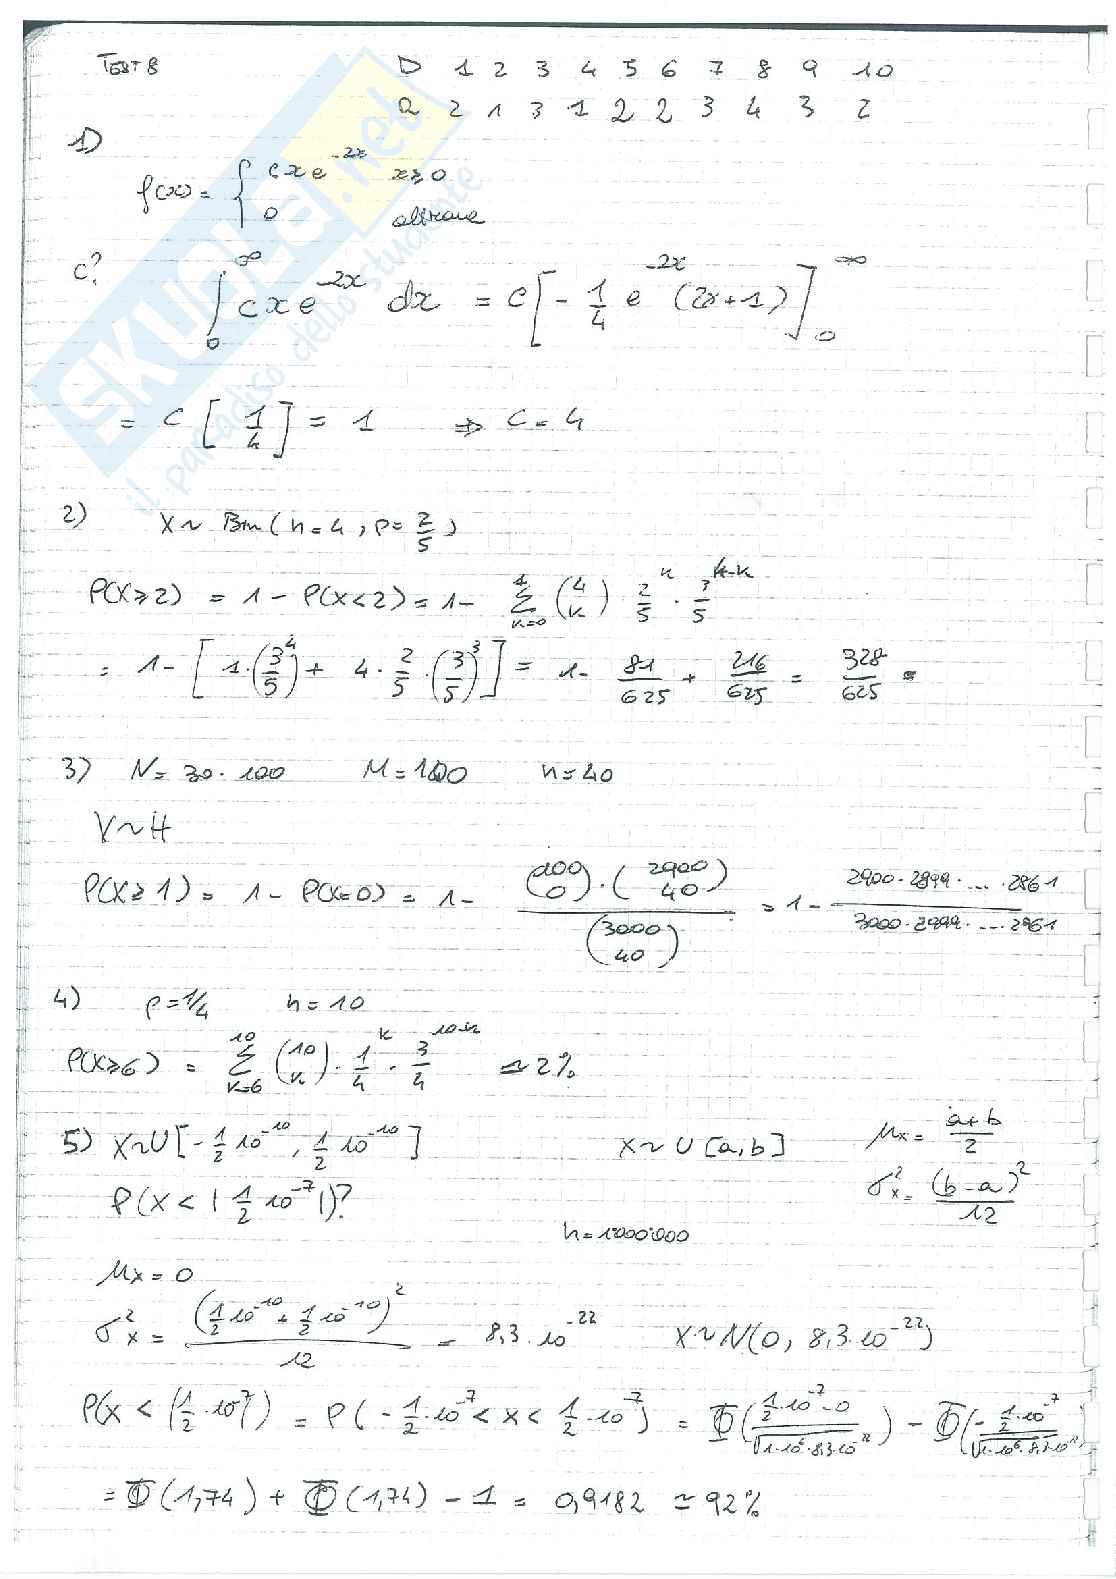 TEST B
D 1 2 3 4 5 6 7 8 9 10
R 2 1 3 1 2 2 3 4 3 2
1)
f(x) = { c x e^{-2x} x ≥ 0
0 altrove
c? ∫_0^∞ c x e^{-2x} dx = c [ - 1/4 e^{-2x} (2x+1) ]_0^∞
= c [ 1/4 ] = 1 ⇒ c = 4
2) X ~ Bin ( n = 4 , p = 2/5 )
P(X ≥ 2) = 1 - P(X < 2) = 1 - Σ_{k=0}^{1} (4 k) 2/5^k · 3/5^{4-k}
= 1 - [ 1 · (3/5)^4 + 4 · 2/5 · (3/5)^3 ] = 1 - 81/625 + 216/625 = 328/625 =
3) N = 30 · 100 M = 100 n = 40
X ~ H
P(X ≥ 1) = 1 - P(X=0) = 1 - (100 0) · (2900 40) / (3000 40) = 1 - 2900 · 2899 · ... · 2861 / 3000 · 2999 · ... 2961
4) p = 1/4 n = 10
P(X ≥ 6) = Σ_{k=6}^{10} (10 k) · 1/4^k · 3/4^{10-k} ≃ 2%
5) X ~ U [ - 1/2 10^{-10} , 1/2 10^{-10} ] X ~ U [a, b] μ_x = a+b/2
P( X < | 1/2 10^{-7} | )? σ²_x = (b-a)²/12
n = 1'000'000
μ_x = 0
σ²_x = ( 1/2 10^{-10} + 1/2 10^{-10} )² / 12 = 8,3 · 10^{-22} X ~ N(0, 8,3 · 10^{-22})
P(X < | 1/2 · 10^{-7} | ) = P ( - 1/2 · 10^{-7} < x < 1/2 · 10^{-7} ) = Φ( 1/2 · 10^{-7} - 0 / √1·10^6 · 8,3·10^{-22} ) - Φ( - 1/2 · 10^{-7} / √1·10^6 · 8,3·10^{-22} )
= Φ (1,74) + Φ (1,74) - 1 = 0,9182 ≃ 92%
SKUOLA.net
il paradiso dello studente